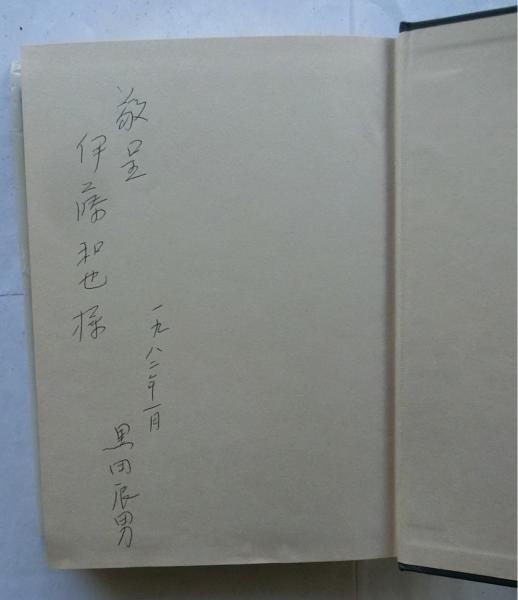 敬呈
伊藤和也様
一九八二年一月
黒田辰男